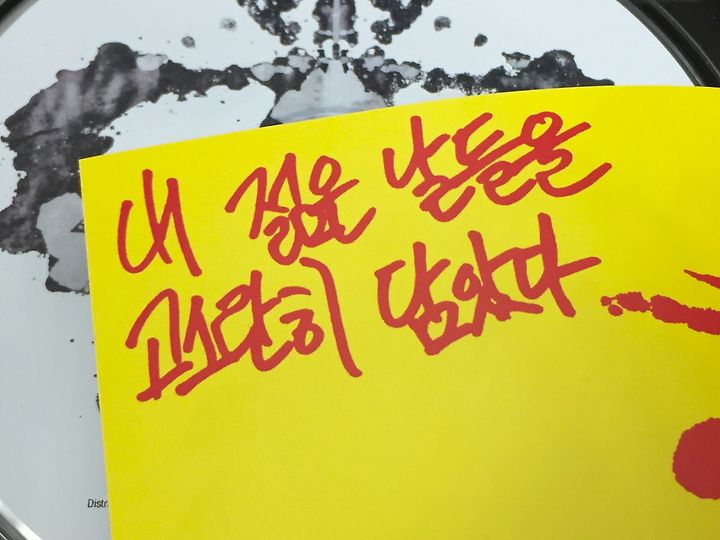 내 젊은 날들을
고요한히 담았다
Distri